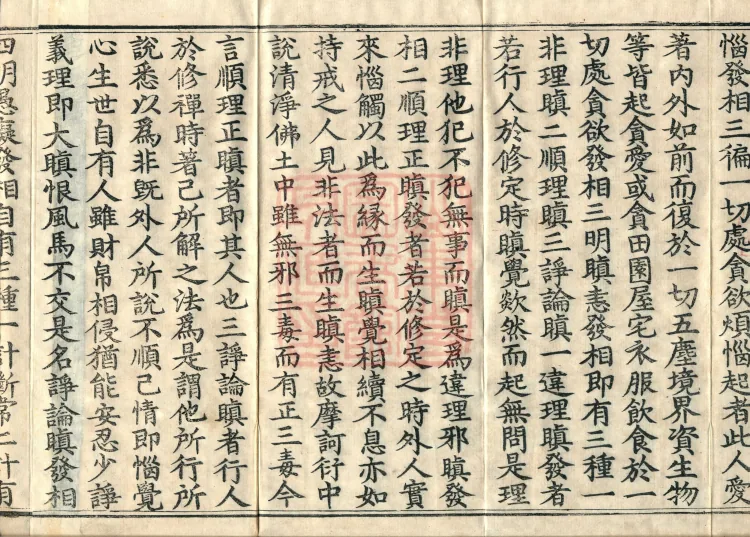 惱發相三徧一切處貪欲煩惱起者此人愛
著內外如前而復於一切五塵境界資生物
等皆起貪愛或貪田園屋宅衣服飲食於一
切處貪欲發相三明瞋恚發相即有三種一
非理瞋二順理瞋三諍論瞋一違理瞋發者
若行人於修定時瞋覺欻然而起無問是理
非理他犯不犯無事而瞋是爲違理邪瞋發
相二順理正瞋發者若於修定之時外人實
來惱觸以此爲緣而生瞋覺相續不息亦如
持戒之人見非法者而生瞋恚故摩訶衍中
說清淨佛土中雖無邪三毒而有正三毒今
言順理正瞋者即其人也三諍論瞋者行人
於修禪時著己所解之法爲是謂他所行所
說悉以爲非旣外人所說不順己情即惱覺
心生世自有人雖財帛相侵猶能安忍少諍
義理即大瞋恨風馬不交是名諍論瞋發相
四明愚癡發相自有三種一計斷常二計有